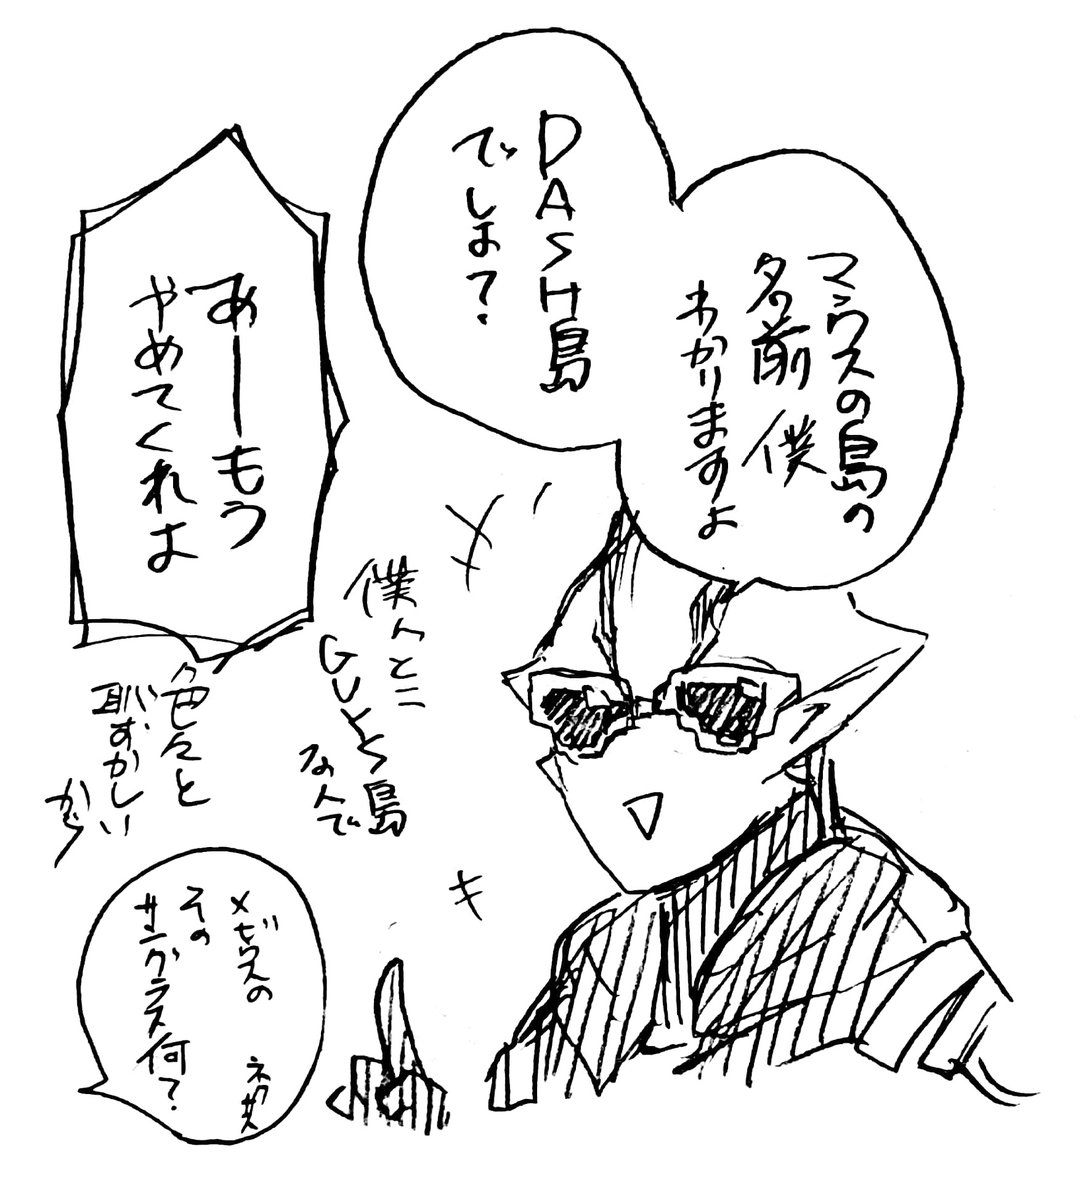 マウスの島の
名前 僕
わかりますよ
DASH島
でしょ?
あーもう
やめてくれよ
僕んとこ
GUYS島
なんで
色々と
恥ずかしい
から
メビウスの
その
サングラス何?